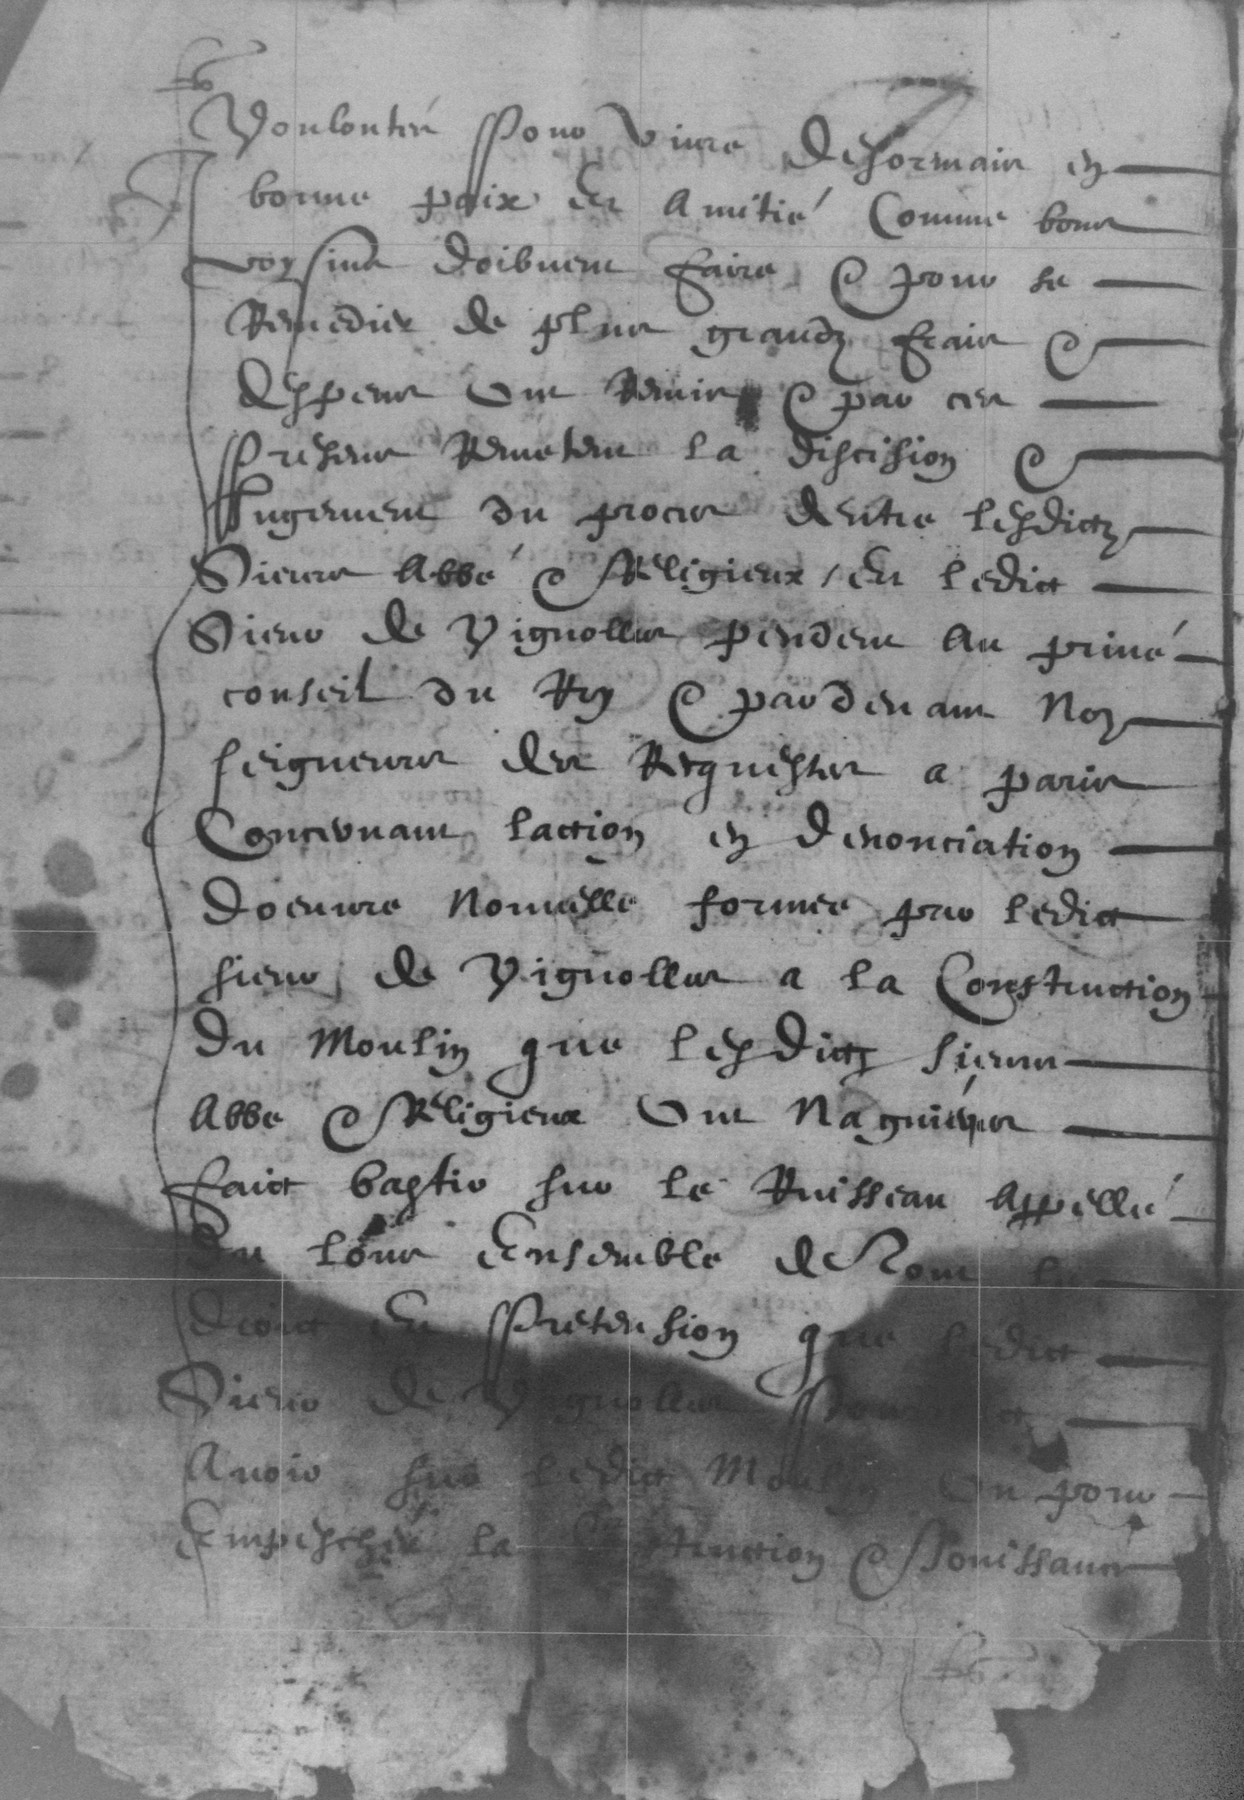 Voulontés pour vivre desormais en
bonne paix et amitié comme bons
voysins doibvent faire & pour se
Remedier de plus grandz frais &
despens ont Remis & par ces
presens Remetent la discision &
Jugement du proces dentre lesdictz
Sieurs Abbé & Religieux / et ledict
Sieur de Vignolles pendent au privé
conseil du Roy & pardevant Noz
seigneurs des Requestes a paris
Concernant laction en denonciation
doeuvre Nouvelle formee par ledict
sieur de Vignolles a la Construction
du Moulin que lesdictz sieurs
Abbe & Religieux ont Naguieres
faict bastir sur le Ruisseau Appellé
du lour Ensemble de tout le
droict et pretension que ledict
Sieur de Vignolles
Avoir sur ledict Moulin ou pour
Empescher la Construction & Jouissance